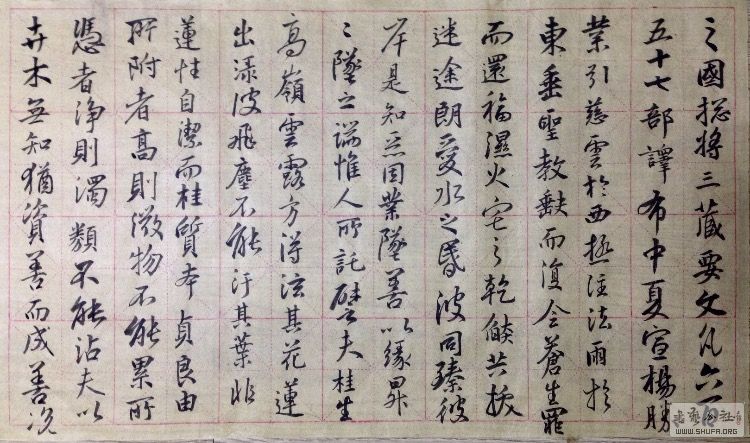 之國摠將三藏要文凡六百
五十七部譯布中夏宣楊勝
業引慈雲於西極注法雨於
東垂聖教缺而復全蒼生罪
而還福濕火宅之乾燄共拔
迷途朗愛水之昏波同臻彼
岸是知惡因業墜善以緣昇
〻墜之端惟人所託譬夫桂生
高嶺雲露方得泫其花蓮
出淥波飛塵不能汙其葉非
蓮性自潔而桂質本貞良由
所附者高則微物不能累所
憑者淨則濁類不能沾夫以
卉木無知猶資善而成善況
WWW.SHUFA.ORG